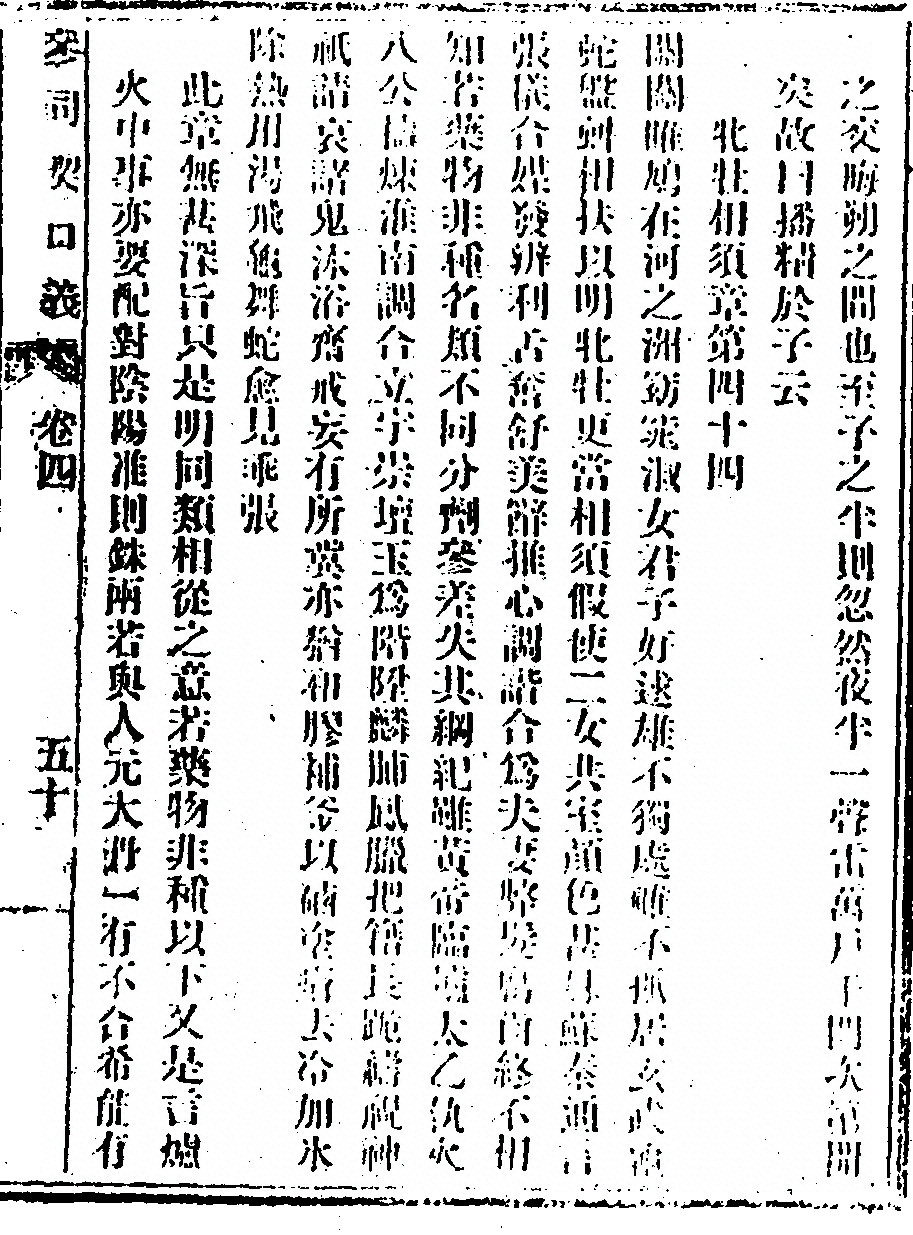 之交晦朔之間也至子之半則忽然夜半一聲雷萬戸千門次第開
矣故曰播精於子云
牝牡相須章第四十四
關關雎鳩在河之洲窈窕淑女君子好逑雄不獨處雌不孤居玄武龜
蛇盤虯相扶以明牝牡更當相須假使二女共室顏色甚姝蘇秦通言
張儀合媒發辨利舌奮舒美辭推心調諧合爲夫妻弊髮腐齒終不相
知若藥物非種名類不同分劑參差失其綱紀雖黃帝臨壇太乙執火
八公擣煉淮南調合立宇崇壇玉爲階陛麟脯鳳臘把籍長跪禱祝神
祇請哀諸鬼沐浴齋戒妄有所冀亦猶和膠補釜以硇塗瘡去冷加氷
除熱用湯飛龜舞蛇愈見乖張
此章無甚深旨只是明同類相從之意若藥物非種以下又是言爐
火中事亦要配對陰陽准則銖兩若與人元大丹一有不合希能有
參同契口義
卷四
五十